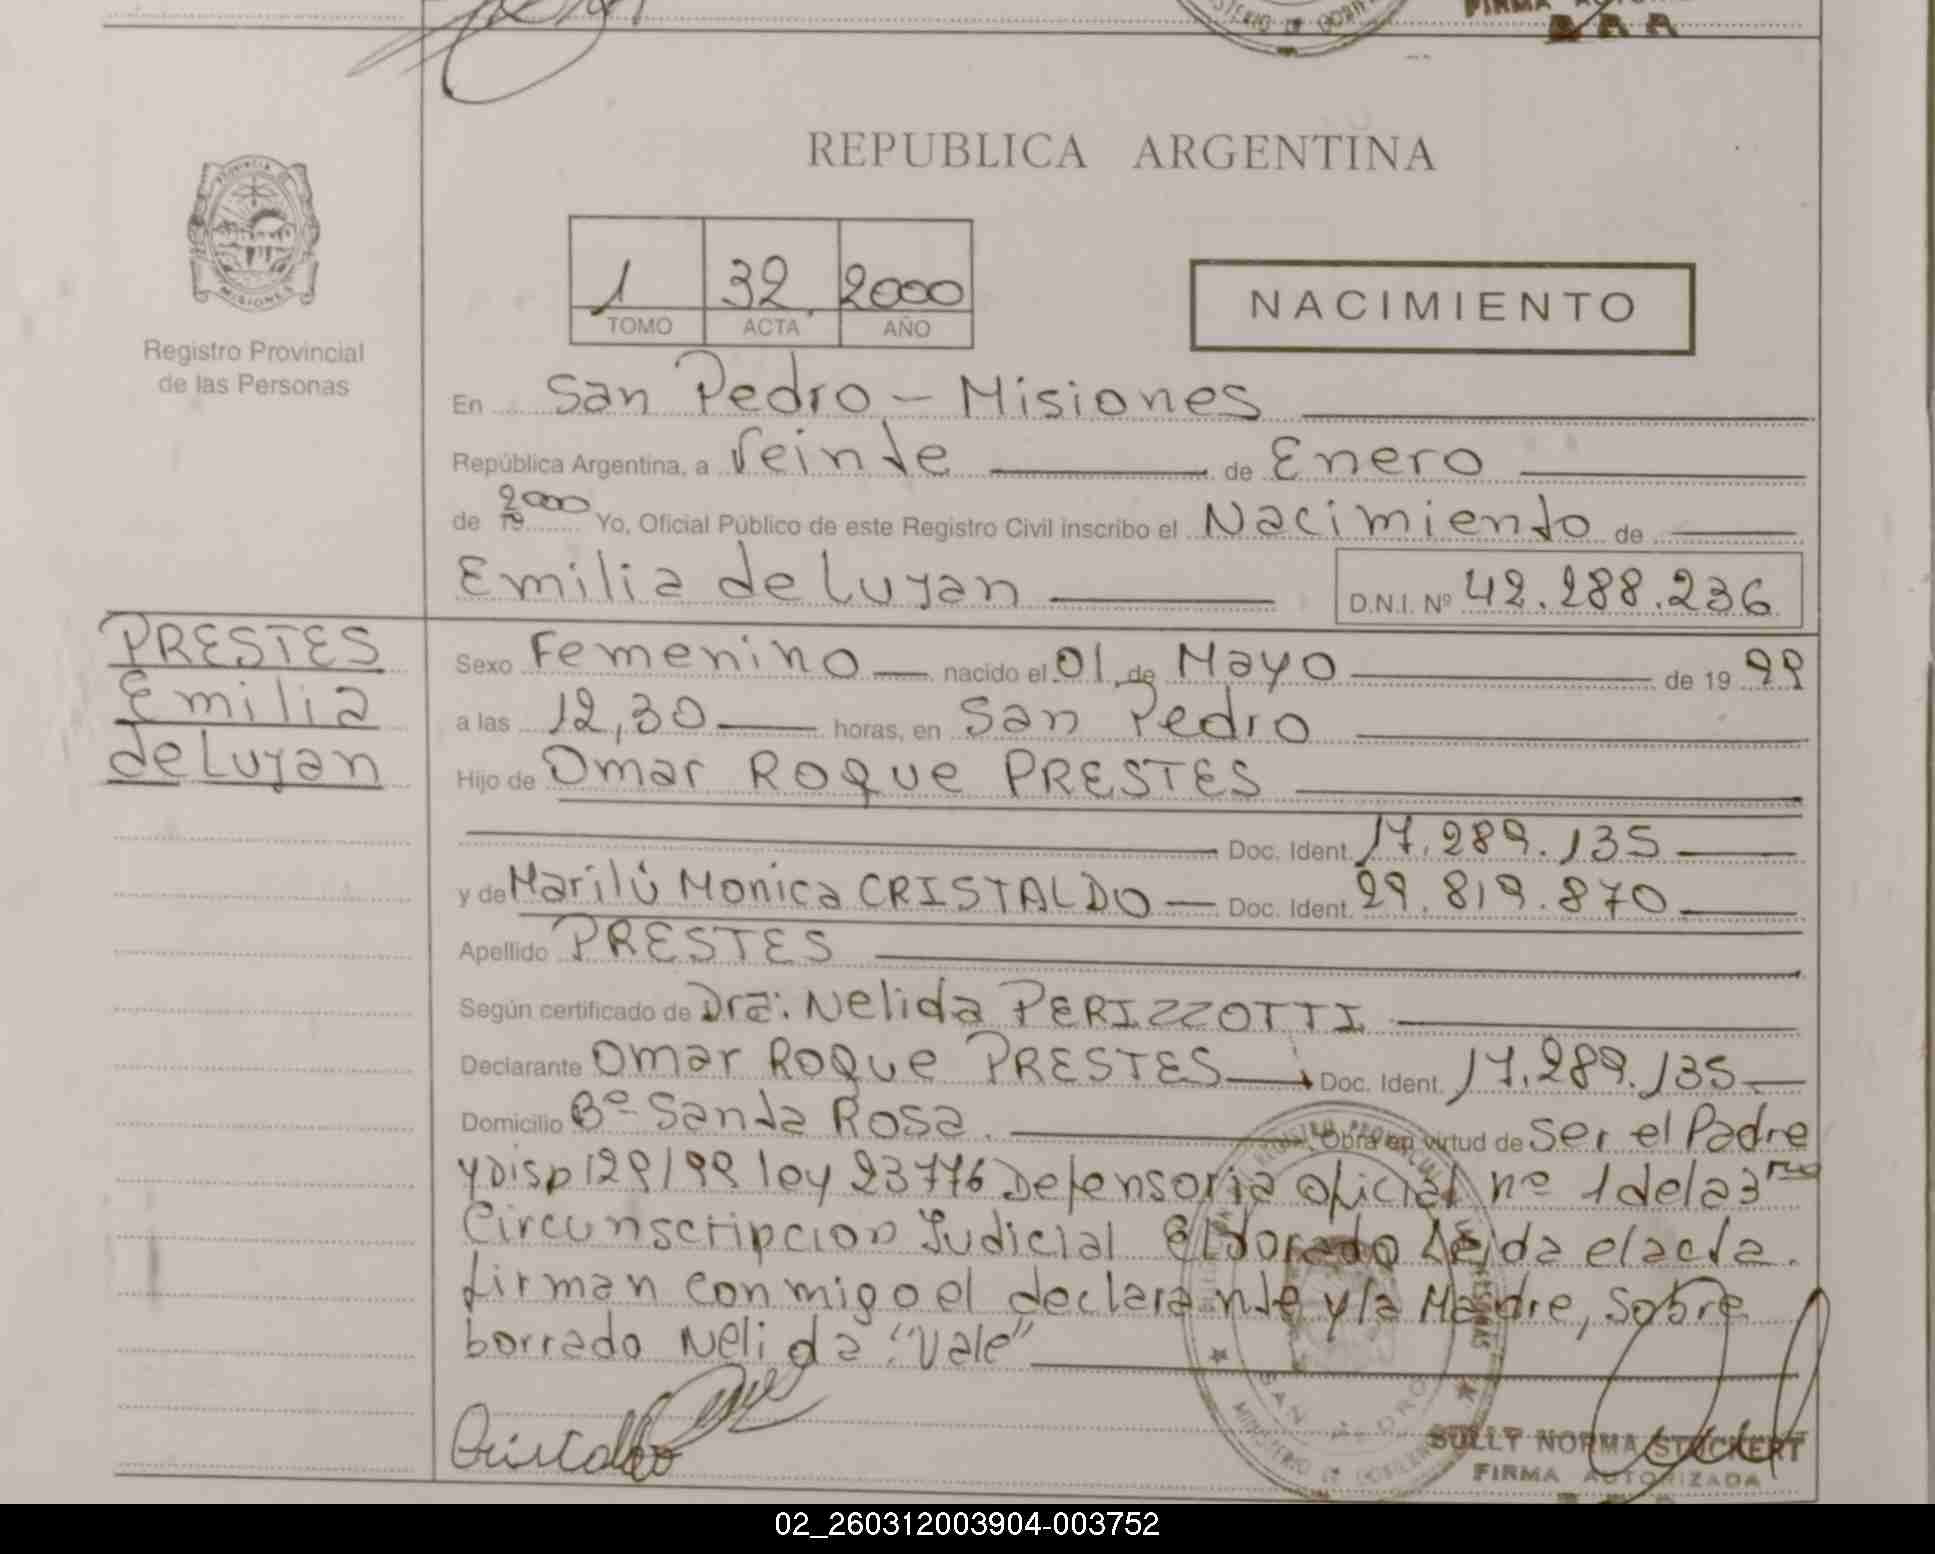 REPUBLICA ARGENTINA
PROVINCIA DE
MISIONES
Registro Provincial
de las Personas
1 32 2000
TOMO ACTA AÑO
NACIMIENTO
En San Pedro - Misiones
República Argentina, a Veinte de Enero
de 19 2000 Yo, Oficial Público de este Registro Civil inscribo el Nacimiento de
Emilia de Luyan D.N.I. Nº 42.288.236
PRESTES
Emilia
de Luyan
Sexo Femenino nacido el 01 de Mayo de 19 99
a las 12,30 horas, en San Pedro
Hijo de Omar Roque PRESTES
Doc. Ident. 17.289.135
y de Marilú Monica CRISTALDO Doc. Ident. 29.819.870
Apellido PRESTES
Según certificado de Dra: Nelida PERIZZOTTI
Declarante Omar Roque PRESTES Doc. Ident. 17.289.135
Domicilio Bº Santa Rosa. Obra en virtud de Ser el Padre
y Disp 129/99 ley 23776 Defensoria oficial nº 1 de la 3ra
Circunscripcion Judicial Eldorado Leida el acta.
firman conmigo el declarante y la Madre, Sobre
borrado Nelida "Vale"
Cristaldo
SAN PEDRO
MINISTERIO DE GOBIERNO
SULLY NORMA STUCKERT
FIRMA AUTORIZADA
02_260312003904-003752